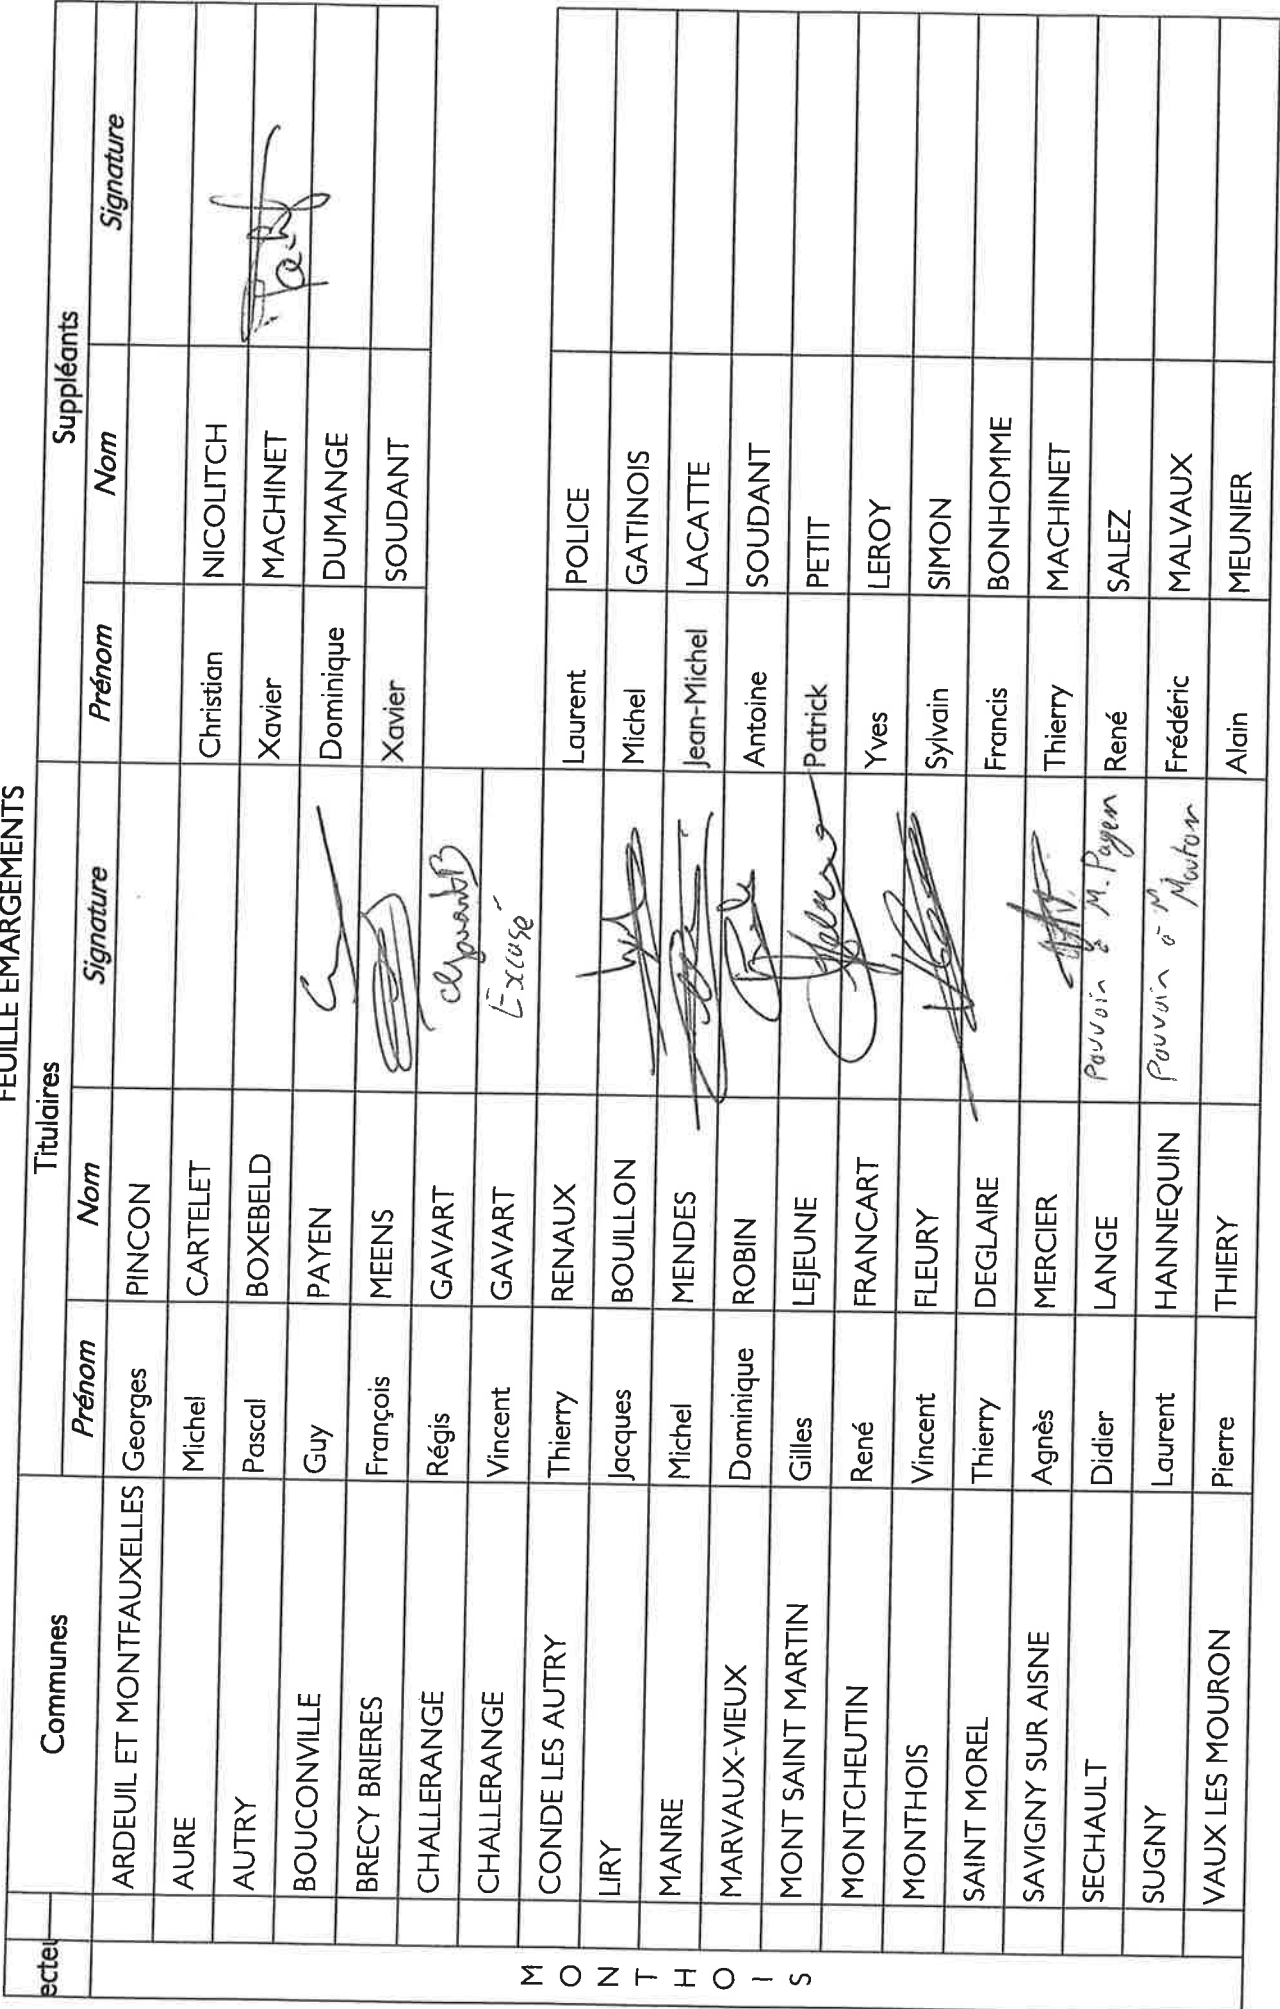 FEUILLE EMARGEMENTS
ecteu Communes Titulaires Suppléants
Prénom Nom Signature Prénom Nom Signature
MONTHOIS
ARDEUIL ET MONTFAUXELLES Georges PINCON
AURE Michel CARTELET Christian NICOLITCH
AUTRY Pascal BOXEBELD Xavier MACHINET
BOUCONVILLE Guy PAYEN Dominique DUMANGE
BRECY BRIERES François MEENS Xavier SOUDANT
CHALLERANGE Régis GAVART
CHALLERANGE Vincent GAVART Excusé
CONDE LES AUTRY Thierry RENAUX Laurent POLICE
LIRY Jacques BOUILLON Michel GATINOIS
MANRE Michel MENDES Jean-Michel LACATTE
MARVAUX-VIEUX Dominique ROBIN Antoine SOUDANT
MONT SAINT MARTIN Gilles LEJEUNE Patrick PETIT
MONTCHEUTIN René FRANCART Yves LEROY
MONTHOIS Vincent FLEURY Sylvain SIMON
SAINT MOREL Thierry DEGLAIRE Francis BONHOMME
SAVIGNY SUR AISNE Agnès MERCIER Thierry MACHINET
SECHAULT Didier LANGE Pouvoir à M. Payen René SALEZ
SUGNY Laurent HANNEQUIN Pouvoir à M Mouton Frédéric MALVAUX
VAUX LES MOURON Pierre THIERY Alain MEUNIER